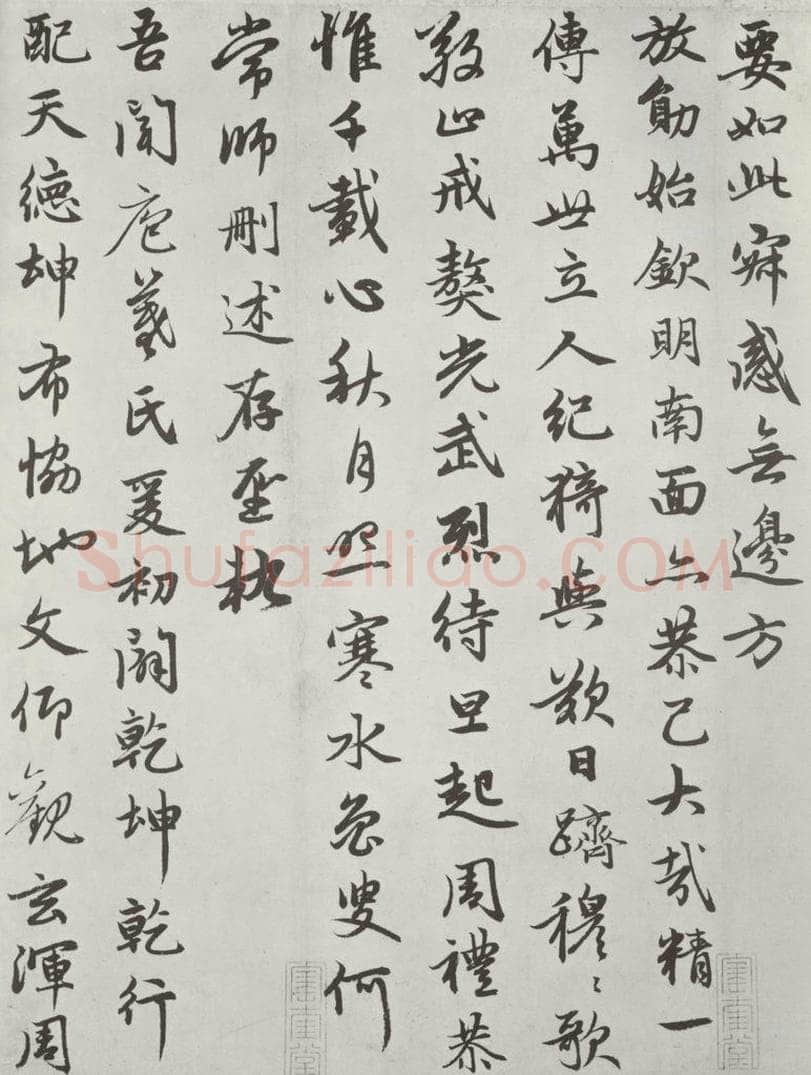 要如此寂感無邊方
放勛始欽明南面亦恭己大哉精一
傳萬世立人紀猗與歎日躋穆〻歌
敬止戒獒光武烈待旦起周禮恭
惟千載心秋月照寒水魯叟何
常師刪述存聖軌
吾聞庖羲氏爰初闢乾坤乾行
配天德坤布協地文仰觀玄渾周
Shufaziliao.COM